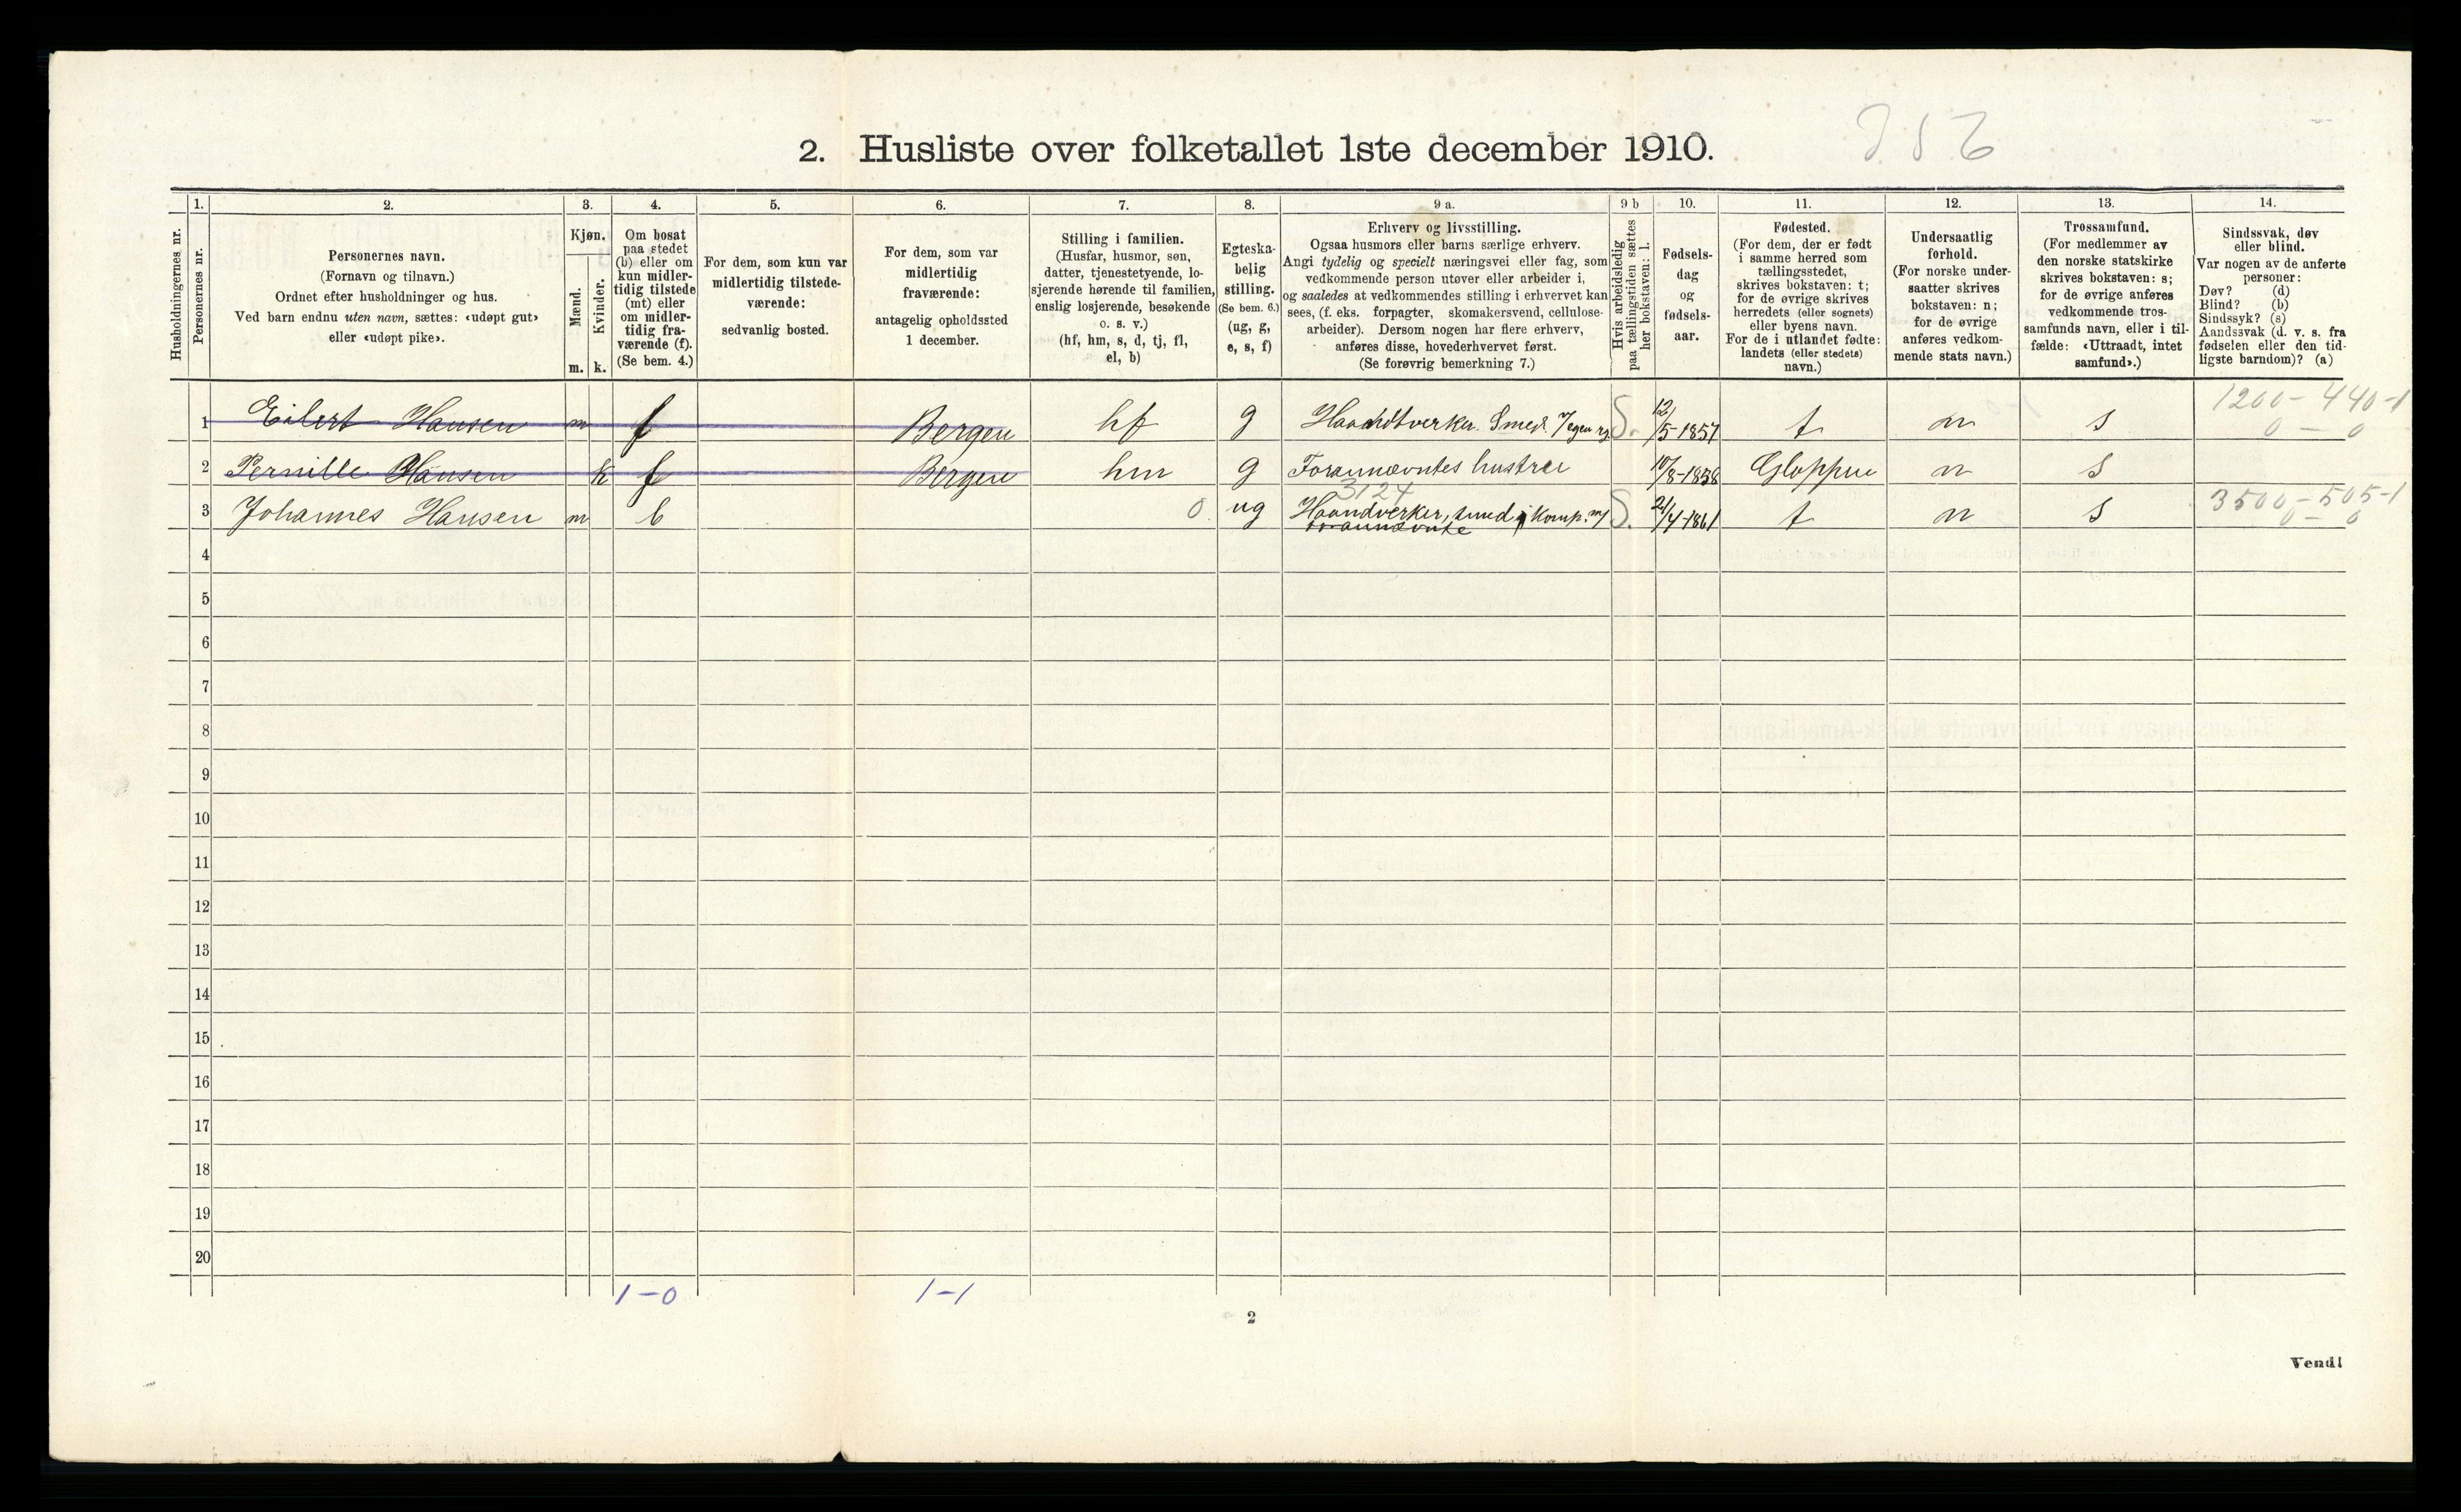 2. Husliste over folketallet 1ste december 1910.
Husholdningernes nr.
1.
Personernes nr.
2.
Personernes navn.
(Fornavn og tilnavn.)
Ordnet efter husholdninger og hus.
Ved barn endnu uten navn, sættes: «udøpt gut»
eller «udøpt pike».
3.
Kjøn.
Mænd.
Kvinder.
m. k.
4.
Om bosat
paa stedet
(b) eller om
kun midler-
tidig tilstede
(mt) eller
om midler-
tidig fra-
værende (f).
(Se bem. 4.)
5.
For dem, som kun var
midlertidig tilstede-
værende:
sedvanlig bosted.
6.
For dem, som var
midlertidig
fraværende:
antagelig opholdssted
1 december.
7.
Stilling i familien.
(Husfar, husmor, søn,
datter, tjenestetyende, lo-
sjerende hørende til familien,
enslig losjerende, besøkende
o. s. v.)
(hf, hm, s, d, tj, fl,
el, b)
8.
Egteska-
belig
stilling.
(Se bem. 6.)
(ug, g,
e, s, f)
9 a.
Erhverv og livsstilling.
Ogsaa husmors eller barns særlige erhverv.
Angi tydelig og specielt næringsvei eller fag, som
vedkommende person utøver eller arbeider i,
og saaledes at vedkommendes stilling i erhvervet kan
sees, (f. eks. forpagter, skomakersvend, cellulose-
arbeider). Dersom nogen har flere erhverv,
anføres disse, hovederhvervet først.
(Se forøvrig bemerkning 7.)
9 b
Hvis arbeidsledig
paa tællingstiden sættes
her bokstaven: l.
10.
Fødsels-
dag
og
fødsels-
aar.
11.
Fødested.
(For dem, der er født
i samme herred som
tællingsstedet,
skrives bokstaven: t;
for de øvrige skrives
herredets (eller sognets)
eller byens navn.
For de i utlandet fødte:
landets (eller stedets)
navn.)
12.
Undersaatlig
forhold.
(For norske under-
saatter skrives
bokstaven: n;
for de øvrige
anføres vedkom-
mende stats navn.)
13.
Trossamfund.
(For medlemmer av
den norske statskirke
skrives bokstaven: s;
for de øvrige anføres
vedkommende tros-
samfunds navn, eller i til-
fælde: «Uttraadt, intet
samfund».)
14.
Sindssvak, døv
eller blind.
Var nogen av de anførte
personer:
Døv? (d)
Blind? (b)
Sindssyk? (s)
Aandssvak (d. v. s. fra
fødselen eller den tid-
ligste barndom)? (a)
1200-440-1
1 Eilert Hansen m f Bergen hf g Haandtverker. Smed S. 12/5-1857 t n s 0-0
2 Pernille Hansen k f Bergen hm g Forannævntes hustru 10/8-1858 Gloppen n s
3124
3 Johannes Hansen m b 0 ug Haandverker, smed i komp. m/ S. 21/4-1861 t n s 3500-505-1
forannævnte 0-0
4
5
6
7
8
9
10
11
12
13
14
15
16
17
18
19
20
1-0 1-1
2
Vend!